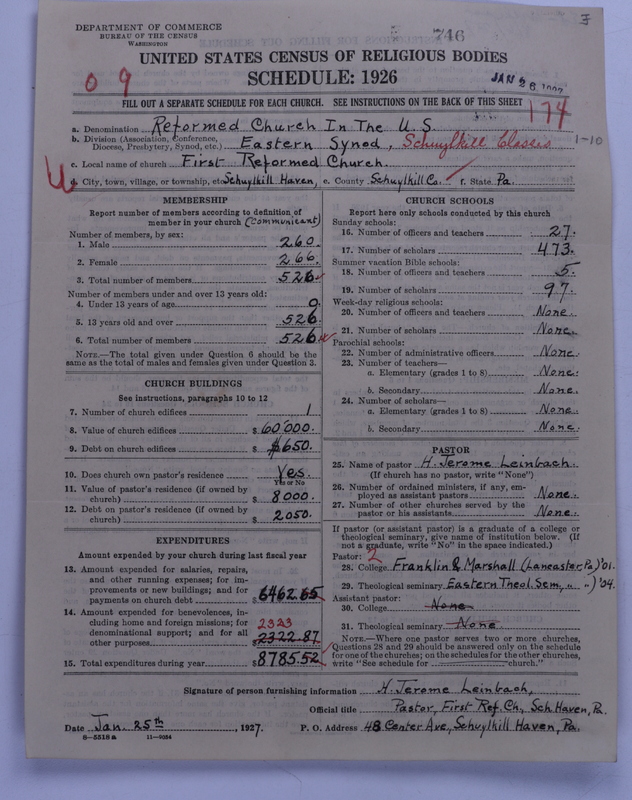 746
DEPARTMENT OF COMMERCE
BUREAU OF THE CENSUS
WASHINGTON
UNITED STATES CENSUS OF RELIGIOUS BODIES
SCHEDULE: 1926
JAN 26 1927
0 9
FILL OUT A SEPARATE SCHEDULE FOR EACH CHURCH. SEE INSTRUCTIONS ON THE BACK OF THIS SHEET
174
a. Denomination Reformed Church In The U S.
b. Division (Association, Conference, Diocese, Presbytery, Synod, etc.) Eastern Synod, Schuylkill Classes 1-10
c. Local name of church First Reformed Church.
d. City, town, village, or township, etc. Schuylkill Haven, e. County Schuylkill Co. f. State Pa.
MEMBERSHIP
Report number of members according to definition of member in your church (Communicant)
Number of members, by sex:
1. Male 260.
2. Female 266.
3. Total number of members 526
Number of members under and over 13 years old:
4. Under 13 years of age 0
5. 13 years old and over 526
6. Total number of members 526
NOTE.—The total given under Question 6 should be the same as the total of males and females given under Question 3.
CHURCH BUILDINGS
See instructions, paragraphs 10 to 12
7. Number of church edifices 1
8. Value of church edifices $ 60000.
9. Debt on church edifices $ $650.
10. Does church own pastor's residence Yes.
Yes or No
11. Value of pastor's residence (if owned by church) $ 8000.
12. Debt on pastor's residence (if owned by church) $ 2050.
EXPENDITURES
Amount expended by your church during last fiscal year
13. Amount expended for salaries, repairs, and other running expenses; for improvements or new buildings; and for payments on church debt $ 6462.65
14. Amount expended for benevolences, including home and foreign missions; for denominational support; and for all other purposes 2323 $ 2322.87
15. Total expenditures during year $ 8785.52
CHURCH SCHOOLS
Report here only schools conducted by this church
Sunday schools:
16. Number of officers and teachers 27.
17. Number of scholars 473.
Summer vacation Bible schools:
18. Number of officers and teachers 5.
19. Number of scholars 97.
Week-day religious schools:
20. Number of officers and teachers None.
21. Number of scholars None.
Parochial schools:
22. Number of administrative officers None.
23. Number of teachers—
a. Elementary (grades 1 to 8) None.
b. Secondary None.
24. Number of scholars—
a. Elementary (grades 1 to 8) None.
b. Secondary None.
PASTOR
25. Name of pastor H. Jerome Leinbach.
(If church has no pastor, write "None")
26. Number of ordained ministers, if any, employed as assistant pastors None.
27. Number of other churches served by the pastor or his assistants None.
If pastor (or assistant pastor) is a graduate of a college or theological seminary, give name of institution below. (If not a graduate, write "No" in the space indicated.)
Pastor: 2
28. College Franklin & Marshall (Lancaster, Pa) '01.
29. Theological seminary Eastern Theol. Sem, " " ) '04.
Assistant pastor:
30. College None
31. Theological seminary None
NOTE.—Where one pastor serves two or more churches, Questions 28 and 29 should be answered only on the schedule for one of the churches; on the schedules for the other churches, write "See schedule for church."
Signature of person furnishing information H. Jerome Leinbach,
Official title Pastor, First Ref. Ch., Sch. Haven, Pa.
Date Jan. 25th, 1927. P. O. Address 48 Center Ave, Schuylkill Haven, Pa.
8—5518 a 11—9064